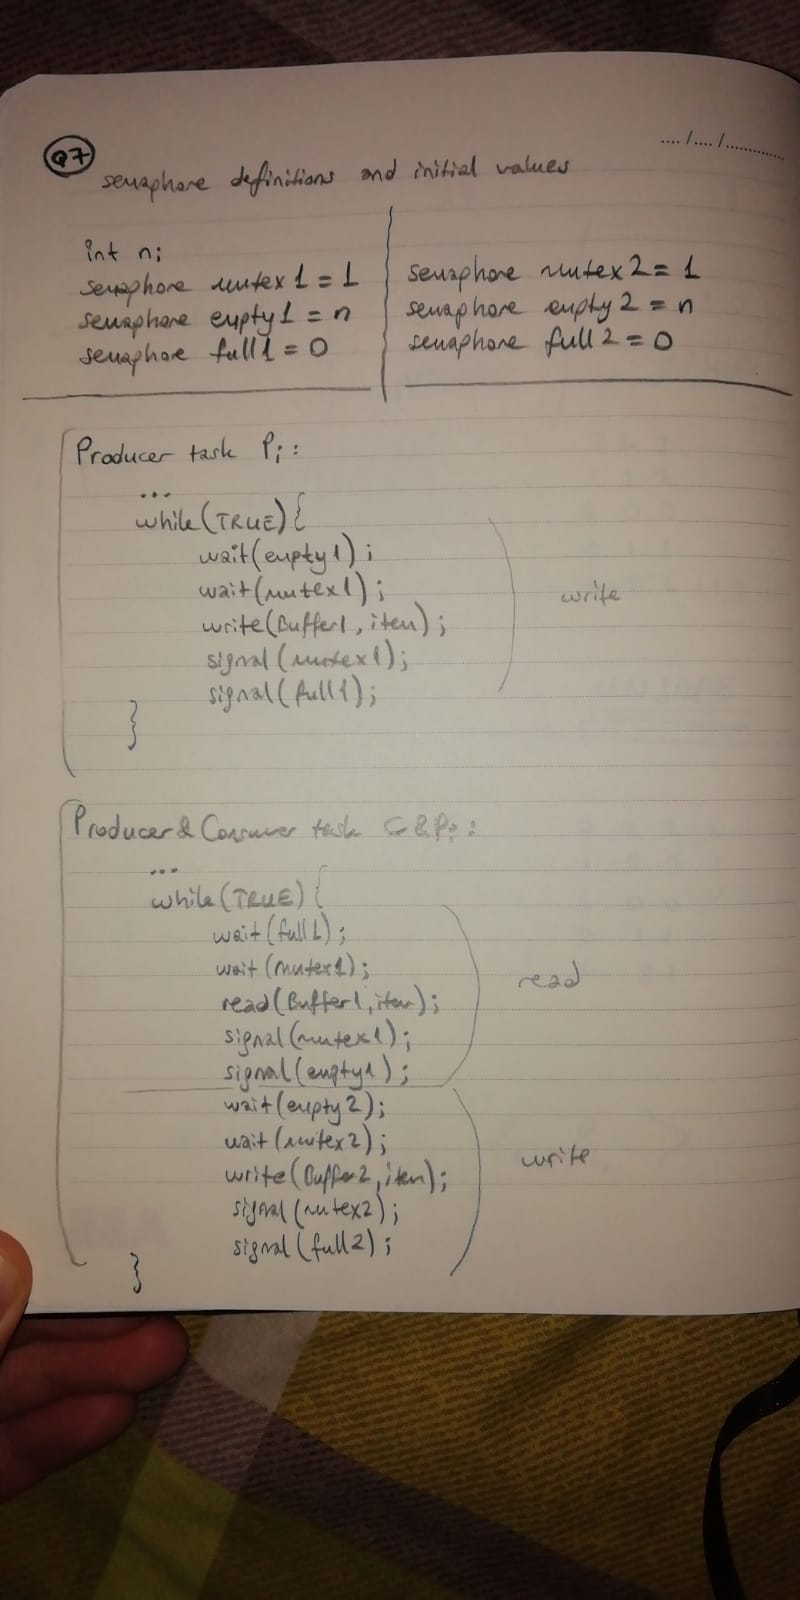 Q7
..../..../............
semaphore definitions and initial values
int n;
semaphore mutex1 = 1
semaphore empty1 = n
semaphore full1 = 0
semaphore mutex2 = 1
semaphore empty2 = n
semaphore full2 = 0
Producer task Pi:
...
while(TRUE){
wait(empty1);
wait(mutex1);
write(Buffer1, item);
signal(mutex1);
signal(full1);
}
write
Producer & Consumer task C&Pi:
...
while(TRUE){
wait(full1);
wait(mutex1);
read(Buffer1, item);
signal(mutex1);
signal(empty1);
read
wait(empty2);
wait(mutex2);
write(Buffer2, item);
signal(mutex2);
signal(full2);
write
}